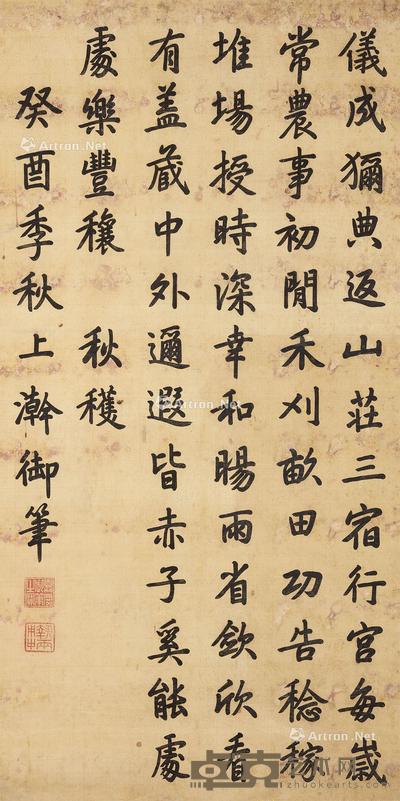 儀成獮典返山莊三宿行宮每歲
常農事初閒禾刈畝田功告稔稼
堆場授時深幸和暘雨省斂欣看
有蓋藏中外邇遐皆赤子奚能處
處樂豐穰　秋穫
癸酉季秋上澣御筆
Artron.Net
卓克艺术网
www.zhuokearts.com